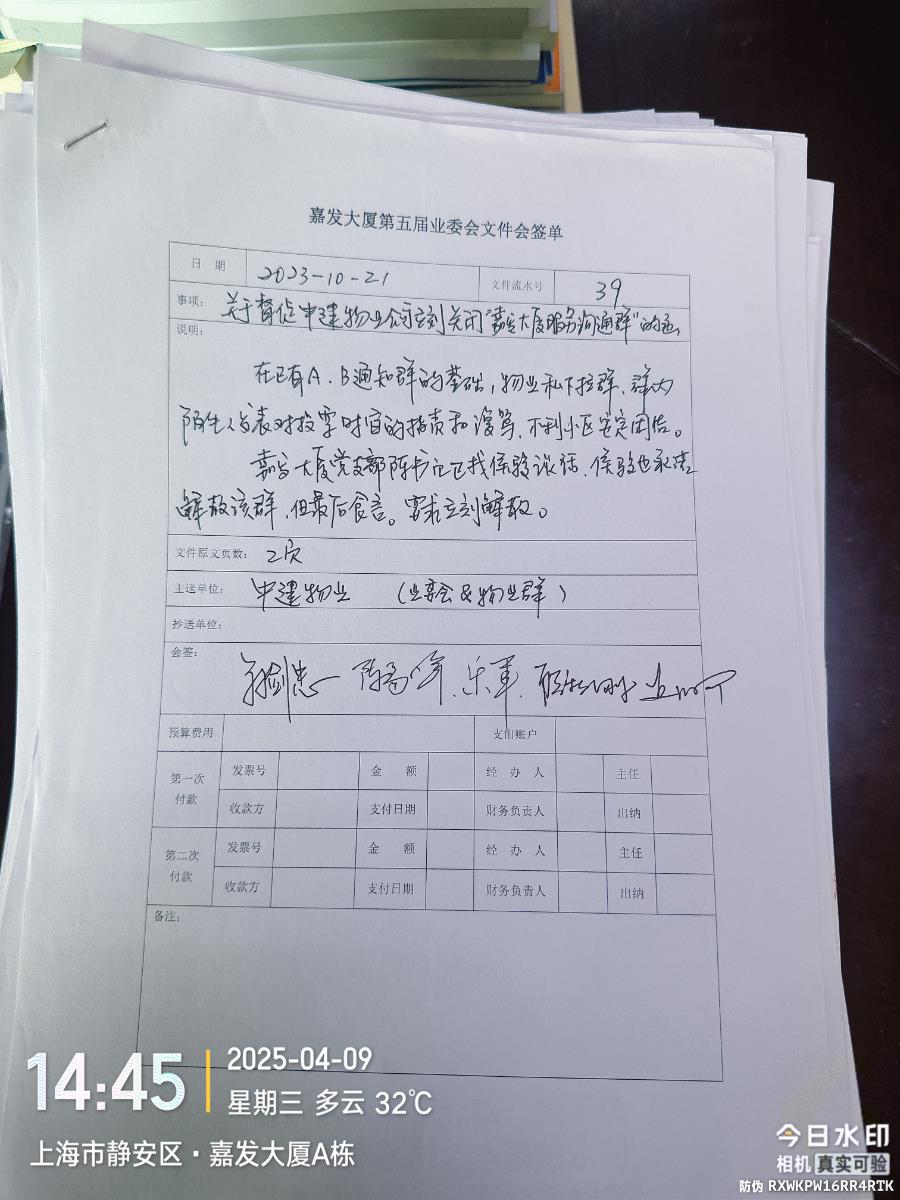 嘉发大厦第五届业委会文件会签单
日 期 2023-10-21 文件流水号 39
事项: 关于督促中建物业公司立刻关闭"嘉发大厦服务沟通群"的函
说明:
在已有A、B通知群的基础,物业私下拉群,群内
陌生人发表对投票时宜的指责和谩骂,不利小区安定团结。
嘉发大厦党支部陈书记已找侯骏谈话,侯骏也承诺
解散该群,但最后食言。要求立刻解散。
文件原文页数: 2页
主送单位: 中建物业 (业委会&物业群)
抄送单位:
会签:
预算费用 支出账户
第一次付款 发票号 金 额 经 办 人 主任
收款方 支付日期 财务负责人 出纳
第二次付款 发票号 金 额 经 办 人 主任
收款方 支付日期 财务负责人 出纳
备注:
14:45
2025-04-09
星期三 多云 32℃
上海市静安区·嘉发大厦A栋
今日水印
相机 真实可验
防伪 RXWKPW16RR4RTK